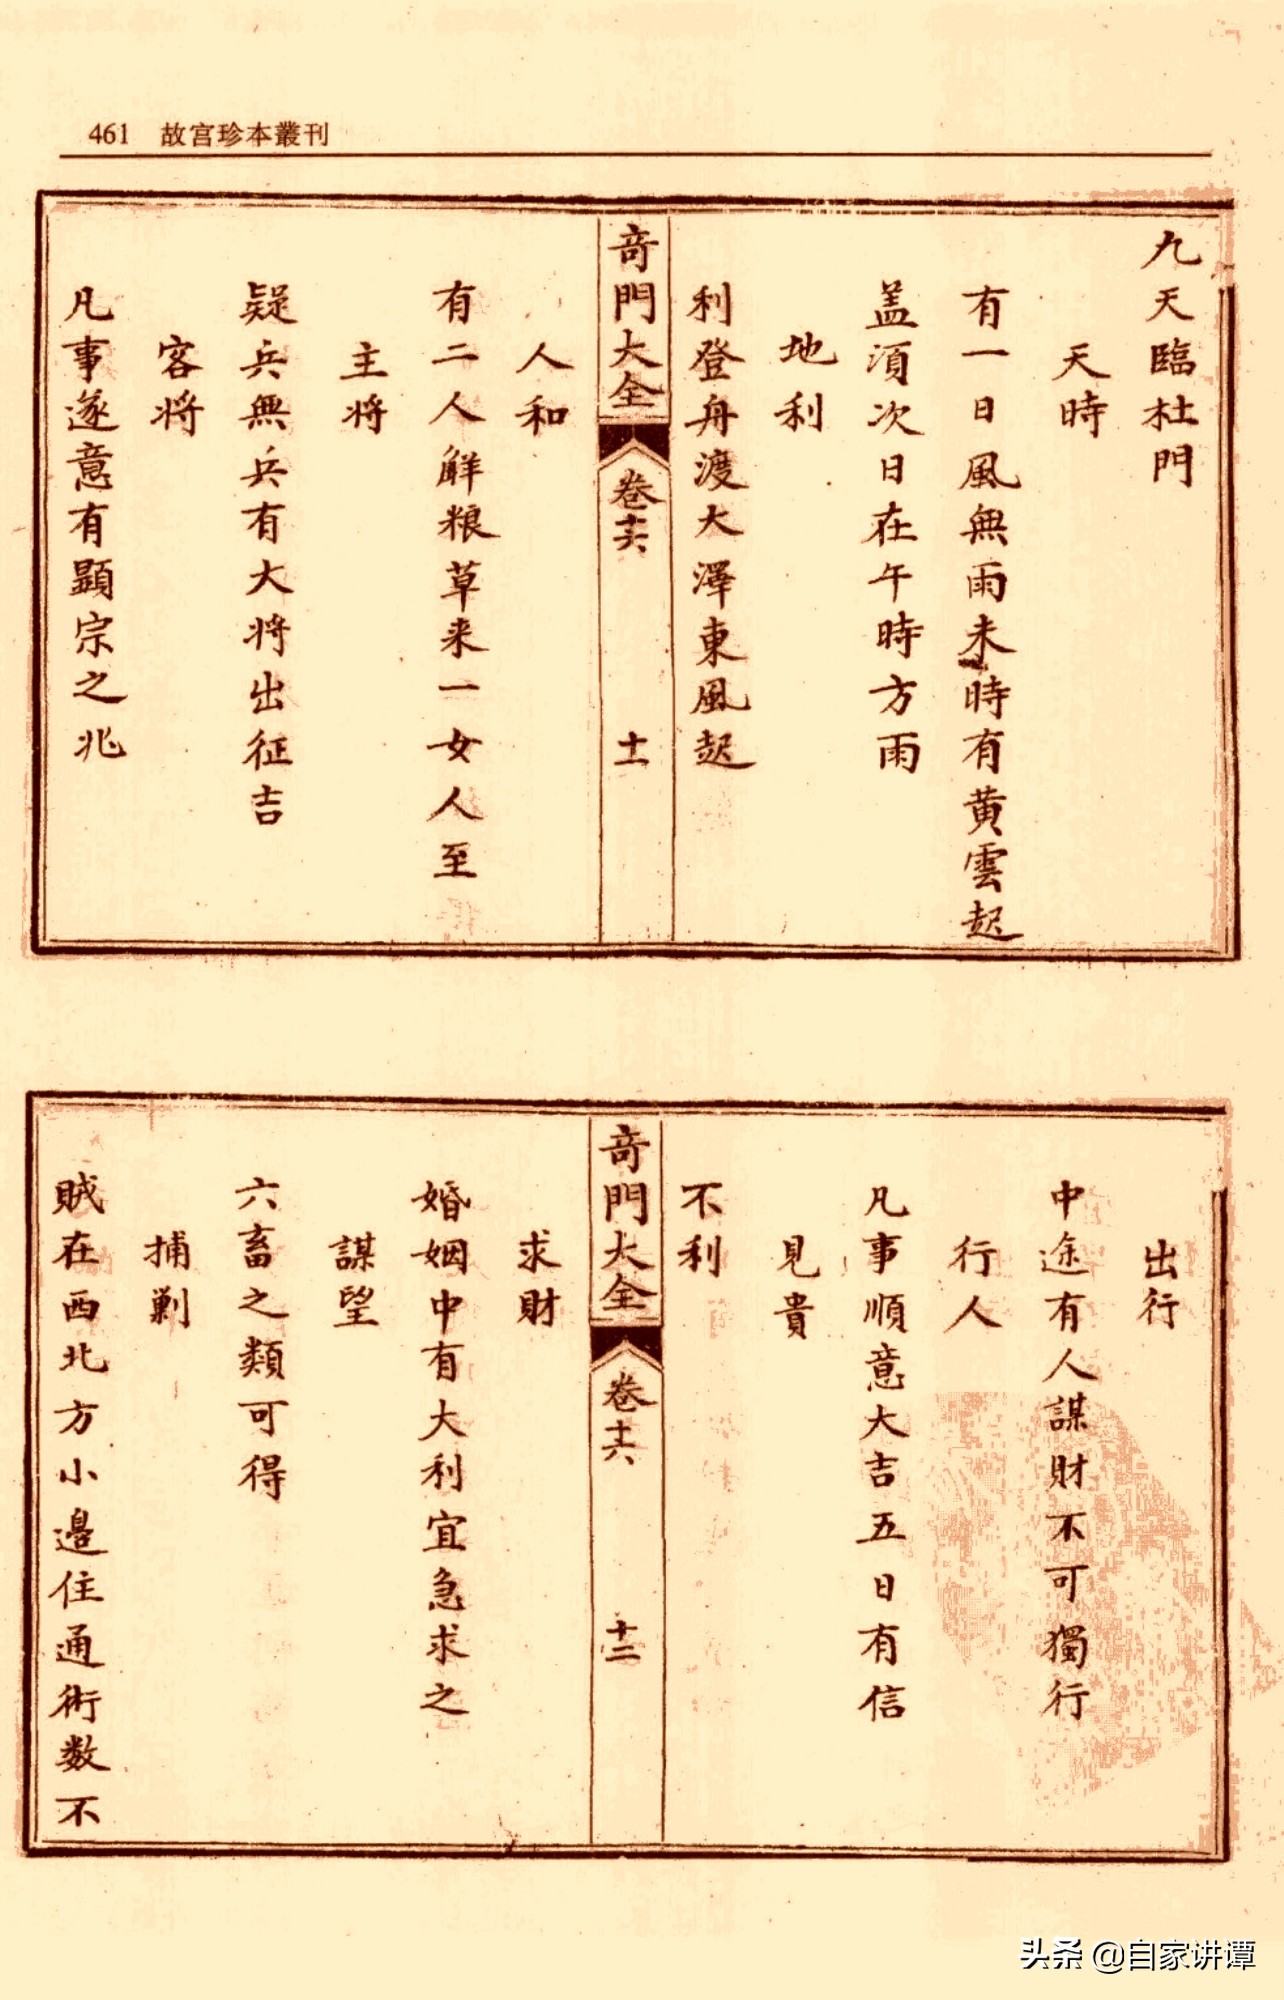 461 故宫珍本叢刊
九天臨杜門
天時
有一日風無雨未時有黄雲起
盖湏次日在午時方雨
地利
利登舟渡大澤東風起
奇門大全 卷十六 十一
人和
有二人觧粮草来一女人至
主将
疑兵無兵有大将出征吉
客将
凡事遂意有顕宗之兆
出行
中途有人謀財不可獨行
行人
凡事順意大吉五日有信
見貴
不利
奇門大全 卷十六 十二
求財
婚姻中有大利宜急求之
謀望
六畜之類可得
捕剿
賊在西北方小邉住通術数不
头条 @自家讲谭